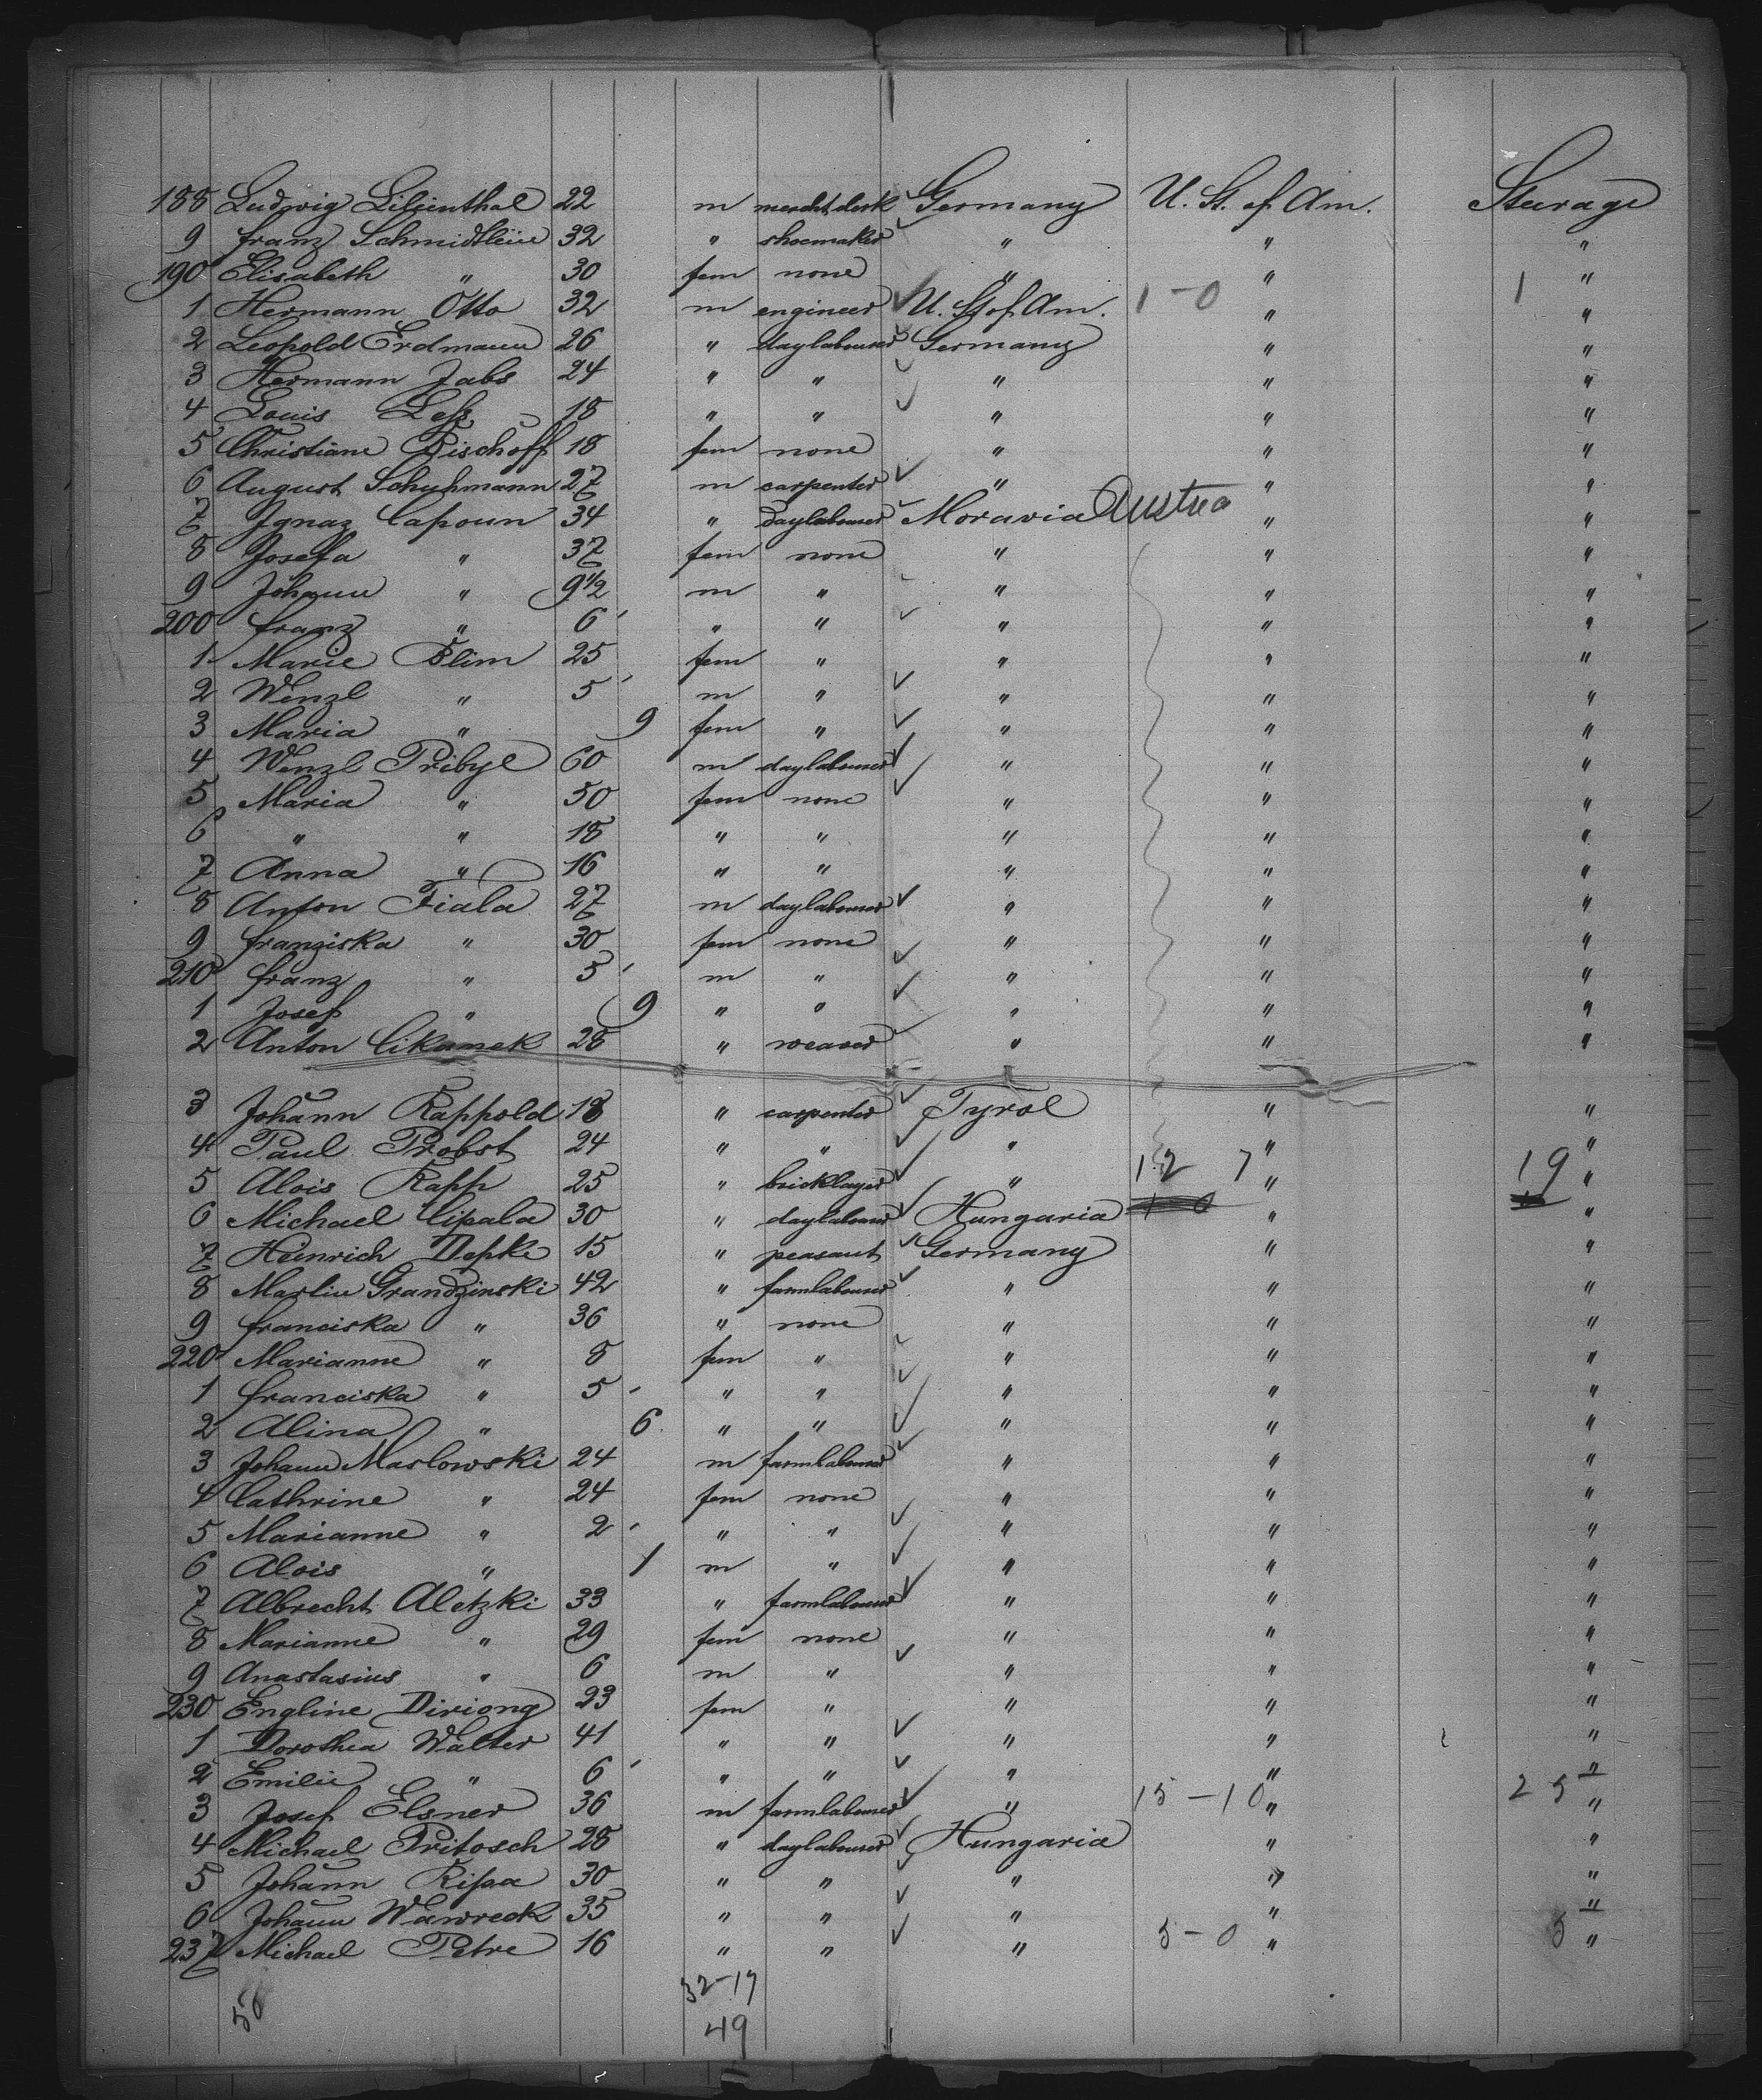 188 Ludwig Lilienthal 22 m mercht. clerk Germany U. St. of Am. Steerage
9 Franz Schmidtlein 32 " shoemaker " " "
190 Elisabeth " 30 fem none " " "
1 Hermann Otto 32 m engineer U. St. of Am. 1-0 " 1 "
2 Leopold Erdmann 26 " daylabourer Germany " "
3 Hermann Jabs 24 " " " " "
4 Louis Less 18 " " " " "
5 Christiane Bischoff 18 fem none " " "
6 August Schuhmann 27 m carpenter " " "
7 Ignaz Capoun 34 " daylabourer Moravia Austria " "
8 Josefa " 37 fem none " " "
9 Johann " 9 1/2 m " " " "
200 Franz " 6 " " " " "
1 Marie Blim 25 fem " " " "
2 Wenzl " 5 m " " " "
3 Maria " 9 fem " " " "
4 Wenzl Pribyl 60 m daylabourer " " "
5 Maria " 50 fem none " " "
6 " " 18 " " " " "
7 Anna " 16 " " " " "
8 Anton Fiala 27 m daylabourer " " "
9 Franziska " 30 fem none " " "
210 Franz " 5 m " " " "
1 Josef " 9 " " " " "
2 Anton Cikanek 28 " weaver " " "
3 Johann Rappold 18 " carpenter Tyrol " "
4 Paul Probst 24 " " " " "
5 Alois Rapp 25 " bricklayer " 12 7 " 19 "
6 Michael Cipala 30 " daylabourer Hungaria " "
7 Heinrich Depke 15 " peasant Germany " "
8 Martin Grandzinski 42 " farmlabourer " " "
9 Franciska " 36 " none " " "
220 Marianne " 8 fem " " " "
1 Franciska " 5 " " " " "
2 Alina " 6 " " " " "
3 Johann Maslowski 24 m farmlabourer " " "
4 Cathrine " 24 fem none " " "
5 Marianne " 2 " " " " "
6 Alois " 1 m " " " "
7 Albrecht Aletzki 33 " farmlabourer " " "
8 Marianne " 29 fem none " " "
9 Anastasius " 6 m " " " "
230 Engline Diriong 23 fem " " " "
1 Dorothea Walter 41 " " " " "
2 Emilie " 6 " " " " "
3 Josef Elsner 36 m farmlabourer " 15-10 " 25 "
4 Michael Pritosch 28 " daylabourer Hungaria " "
5 Johann Ripa 30 " " " " "
6 Johann Wawreck 35 " " " " "
237 Michael Petre 16 " " " 5-0 " 5 "
50 32-17
49